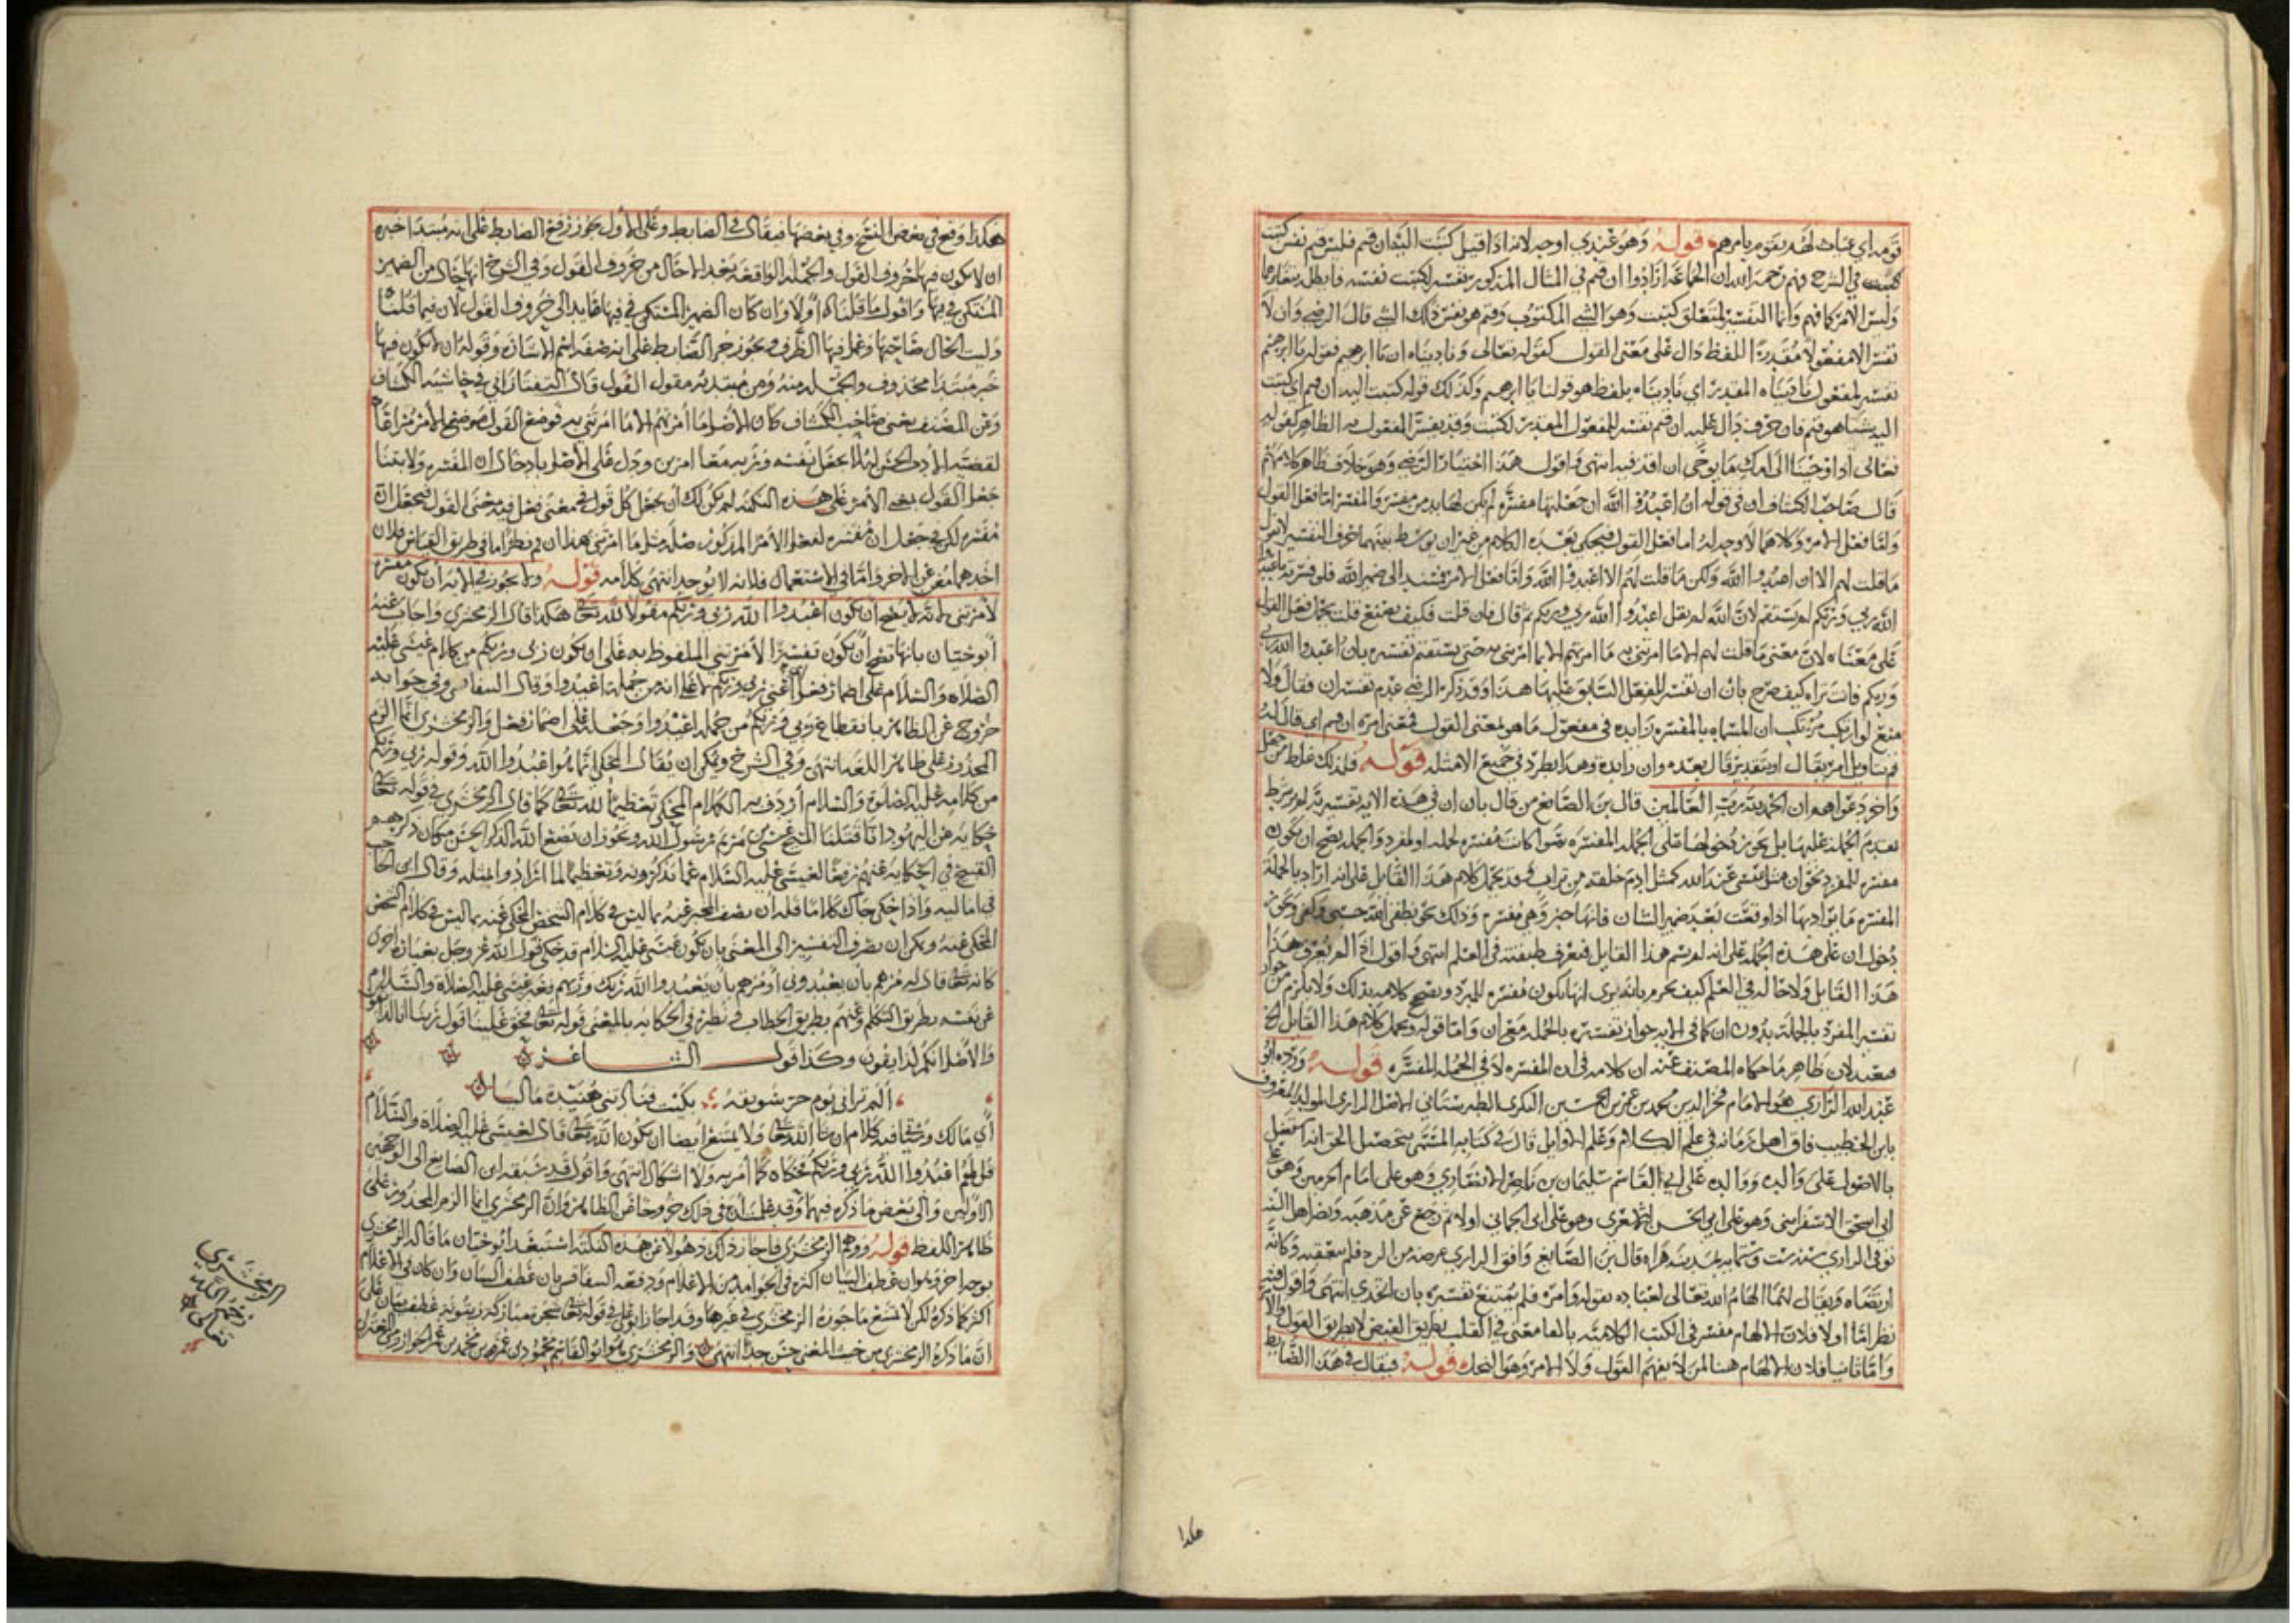 قومه اي عباث لهم بقوم يامرهم قوله وهو عندي اوجه لانه اذا قيل كتبت اليه ان قم فليس قم نفس كتبت
كتبت في الشرح فهم رحمه الله ان الجماعة ارادوا ان قم في المثال المذكور تفسير لكتبت نفسه فابطل
وليس الامر كما فهم وانما التفسير لمتعلق كتبت وهو الشي المكتوب وقم هو نفس ذلك الشي قال الرضي وان لا
تفسر الا مفعولا مقدرا للفظ دال على معنى القول كقوله تعالى وناديناه ان يا ابرهيم فقوله يا ابرهيم
تفسير لمفعول ناديناه المقدر اي ناديناه بلفظ هو قولنا يا ابرهيم وكذلك قوله كتبت اليه ان قم اي كتبت
اليه شيا هو قم فان حرف دال عليه ان قم تفسير للمفعول المقدر لكتبت وقد يفسر المفعول به الظاهر كقوله
تعالى اذ اوحينا الى امك ما يوحى ان اقذفيه انتهى واقول هذا اختيار الرضي وهو خلاف ظاهر كلامهم
قال صاحب الكشاف ان في قوله ان اعبدوا الله ان جعلتها مفسرة لم يكن لها بد من مفسر والمفسر اما فعل القول
واما فعل الامر وكلاهما لا وجه له اما فعل القول فيحكى بعده الكلام من غير ان يوسط بينهما حرف التفسير لا تقول
ما قلت لهم الا ان اعبدوا الله ولكن ما قلت لهم الا اعبدوا الله واما فعل الامر فمسند الى ضمير الله فلو فسرته باعبدوا
الله ربي وربكم لم يستقم لان الله لم يقل اعبدوا الله ربي وربكم ثم قال فان قلت فكيف يصنع قلت يحمل فعل القول
على معناه لان معنى ما قلت لهم الا ما امرتني به ما امرتهم الا بما امرتني به حتى يستقيم تفسيره بان اعبدوا الله ربي
وربكم فانت تراه كيف صرح بان ان تفسير للفعل السابق عليها هذا وقد ذكر الرضي عدم تفسير ان فقال ولا
منع لو ارتكب مرتكب ان المسماه بالمفسره زايده في مفعول ما هو بمعنى القول فمعنى امره ان قم اي قال له
قم بتاويل امر بقال او بتقدير قال بعده وان زايدة وهذا يطرد في جميع الامثله قوله فلذلك غلط من جعل
واخر دعواهم ان الحمد لله رب العالمين قال بن الصايغ من قال بان ان في هذه الايه تفسيريه لم يشترط
تقدم الجملة عليها بل يجوز دخولها على الجملة المفسره سوا كانت مفسره لجمله او لمفرد والجمله يصح ان يكون
مفسره للمفرد نحو ان مثل عيسى عند الله كمثل ادم خلقه من تراب وقد يحمل كلام هذا القايل على انه اراد بالجملة
المفسره ما يراد بها اذا وقعت بعد ضمير الشان فانها خبر وهي مفسره وذلك نحو نطقي الله حسبي وكفى ونحو
دخول ان على هذه الجمله على انه لم يسم هذا القايل فتعرف طبقته في العلم انتهى واقول اذا لم يعرف هذا
هذا القايل ولا حاله في العلم كيف يجزم بانه يرى انها يكون مفسره للمفرد ويصح كلامه بذلك ولا يلزم من جواز
تفسير المفرد بالجملة بدون ان كما في الايه جواز تفسيره بالجمله مع ان واما قوله ويحمل كلام هذا القايل الخ
فبعيد لان ظاهر ما حكاه المصنف عنه ان كلامه في ان المفسره لا في الجمله المفسره قوله ورده ابو
عبد الله الرازي هو الامام فخر الدين محمد بن عمر بن الحسين البكري الطبرستاني الاصل الرازي المولد المعروف
بابن الخطيب فاق اهل زمانه في علم الكلام وعلم الاوايل قال في كتابه المسمى بتحصيل الحق انه اشتغل
بالاصول على والده ووالده على ابي القاسم سليمان بن ناصر الانصاري وهو على امام الحرمين وهو على
ابي اسحق الاسفرايني وهو على ابي الحسن الاشعري وهو على ابي علي الجباني اولا ثم رجع عن مذهبه ونصر اهل السنه
توفي الرازي سنه ست وستمايه بمدينة هراه قال بن الصايغ وافق الرازي غرضه من الرد فلم يتعقبه وكانه
ارتضاه ويقال انما الهام الله تعالى لعباده بقوله وامره فلم يمتنع تفسيره بان اتخذي انتهى واقول فيه
نظر اما اولا فلان الالهام مفسر في الكتب الكلاميه بالقا معنى في القلب بطريق الفيض لا بطريق القول والا
واما ثانيا فلان الالهام هنا لمن لا يفهم القول ولا الامر وهو النحل قوله فيقال في هذا الضابط
هكذا
هكذا وقع في بعض النسخ وفي بعضها فيقال في الضابط وعلى الاول يجوز رفع الضابط على انه مبتدا خبره
ان لا يكون فيها حروف القول والجملة الواقعة بعد الا حال من حروف القول وفي الشرح انها حال من الضمير
المستكن في فيها واقول ما قلناه اولا وان كان الضمير المستكن في فيها عايد الى حروف القول لان فيما قلنا
وليت الحال صاحبها وعمل فيها الظرف ويجوز جر الضابط على انه صفه اسم الاشارة وقوله ان لا يكون فيها
خبر مبتدا محذوف والجملة منه ومن مبتدئه مقول القول قال التفتازاني في حاشيه الكشاف
وعن المصنف يعني صاحب الكشاف كان الاصل ما امرتهم الا ما امرتني به فوضع القول موضع الامر مراعاة
لقضية الادب الحسن ليلا يجعل نفسه وربه معا امرين ودل على الاصل بادخال ان المفسره ولا يقنا
جعل القول بمعنى الامر على هذه النكتة لم يكن لك ان تجعل كل قول في معنى فعل فيه معنى القول فتجعل ان
مفسره لكن في جعل ان مفسره لفعل الامر المذكور صله مثل ما امرتني بهذا ان قم نظر اما في طريق القياس فلان
احدهما مغن عن الاخر واما في الاستعمال فلانه لا يوجد انتهى كلامه قوله ولا يجوز في الايه ان يكون مفسره
لامرتني لانه لا يصح ان يكون اعبدوا الله ربي وربكم مقولا لله تعالى هكذا قال الزمخشري واجاب عنه
ابو حيان بانها تصح ان يكون تفسيرا لامرتني الملفوظ به على ان يكون ربي وربكم من كلام عيسى عليه
الصلاة والسلام على اضمار فعل اي اعني ربي وربكم لا على انه من جملة اعبدوا وقال السفاقسي وفي جوابه
خروج عن الظاهر بانقطاع ربي وربكم من جملة اعبدوا وجعله على اضمار فعل والزمخشري انما الزم
المحذور على ظاهر اللفظ انتهى وفي الشرح ويمكن ان يقال المحكي انما هو اعبدوا الله وقوله ربي وربكم
من كلامه عليه الصلوة والسلام اردف به الكلام المحكي تعظيما لله تعالى كما قال الزمخشري في قوله تعالى
حكاية عن اليهود انا قتلنا المسيح عيسى بن مريم رسول الله ويجوز ان يضع الله الذكر الحسن مكان ذكرهم
القبيح في الحكايه عنهم رفعا لعيسى عليه السلام عما يذكرونه وتعظيما لما ارادوا بمثله وقال ابن الحاجب
في اماليه واذا حكى حاك كلاما فله ان يصف المخبر عنه بما ليس في كلام الشخص المحكي عنه بما ليس في كلام الشخص
المحكي عنه ويمكن ان يصرف التفسير الى المعنى بان يكون عيسى عليه السلام قد حكى قول الله عز وجل بعبارة اخرى
كانه تعالى قال له مرهم بان يعبدوني او مرهم بان يعبدوا الله ربك وربهم فعبر عيسى عليه الصلاة والسلام
عن نفسه بطريق التكلم وعنهم بطريق الخطاب ونظيره في الحكايه بالمعنى قوله تعالى فحق علينا قول ربنا انا لذايقون
والاصل انكم لذايقون وكذا قول الشاعر
الم تراني يوم جو سويقة بكيت فنادتني هنيدة ماليا
اي مالك وبقيه كلام ان شا الله تعالى ولا يمتنع ايضا ان يكون الله تعالى قال لعيسى عليه الصلاة والسلام
قل لهم اعبدوا الله ربي وربكم فحكاه كما امر به ولا اشكال انتهى واقول قد سبقه ابن الصايغ الى الوجهين
الاولين والى بعض ما ذكره فيهما وقد علمت ان في ذلك خروجا عن الظاهر وان الزمخشري انما الزم المحذور على
ظاهر اللفظ قوله ووهم الزمخشري فاجاز ذلك ذهولا عن هذه النكتة استبعد ابو حيان ما قاله الزمخشري
بوجه اخر وهو ان عطف البيان اكثره في الجوامد من الاعلام ودفعه السفاقسي بان عطف البيان وان كان في الاعلام
اكثر كما ذكره لكن لا يمنع ما جوزه الزمخشري في غيرها وقد اجاز ابو علي في قوله تعالى شجرة مباركة زيتونة عطف بيان على
ان ما ذكره الزمخشري من حيث المعنى حسن جدا انتهى والزمخشري هو ابو القاسم محمود بن عمر بن محمد بن عمر الخوارزمي المعتزلي
الزمخشري
رحمه الله
تعالى